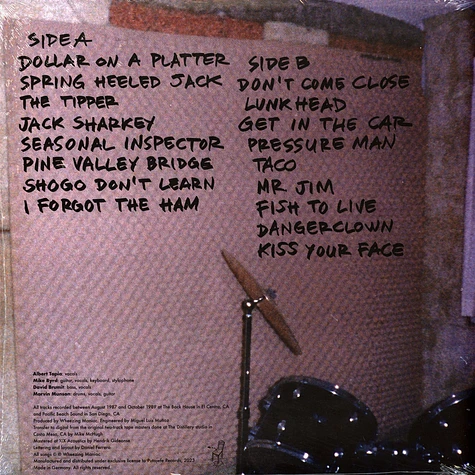 SIDE A
DOLLAR ON A PLATTER
SPRING HEELED JACK
THE TIPPER
JACK SHARKEY
SEASONAL INSPECTOR
PINE VALLEY BRIDGE
SHOGO DON'T LEARN
I FORGOT THE HAM
SIDE B
DON'T COME CLOSE
LUNKHEAD
GET IN THE CAR
PRESSURE MAN
TACO
MR JIM
FISH TO LIVE
DANGERCLOWN
KISS YOUR FACE
Albert Tapia: vocals
Mike Byrd: guitar, vocals, keyboard, stylophone
David Brumit: bass, vocals
Marvin Munson: drums, vocals, guitar
All tracks recorded between August 1987 and October 1989 at The Rock House in El Centro, CA
and Pacific Beach Sound in San Diego, CA
Produced by Wheezing Maniac. Engineered by Miguel Luis
Transfer to digital from the original two-track tape masters done at The Distillery studio in
Costa Mesa, CA by Mike McHugh
Mastered at TJX Acoustics by Hendrik
Lettering and layout by Daniel Ferreira
All songs © ℗ Wheezing Maniac.
Manufactured and distributed under exclusive license to 2023
Made in Germany. All rights reserved.